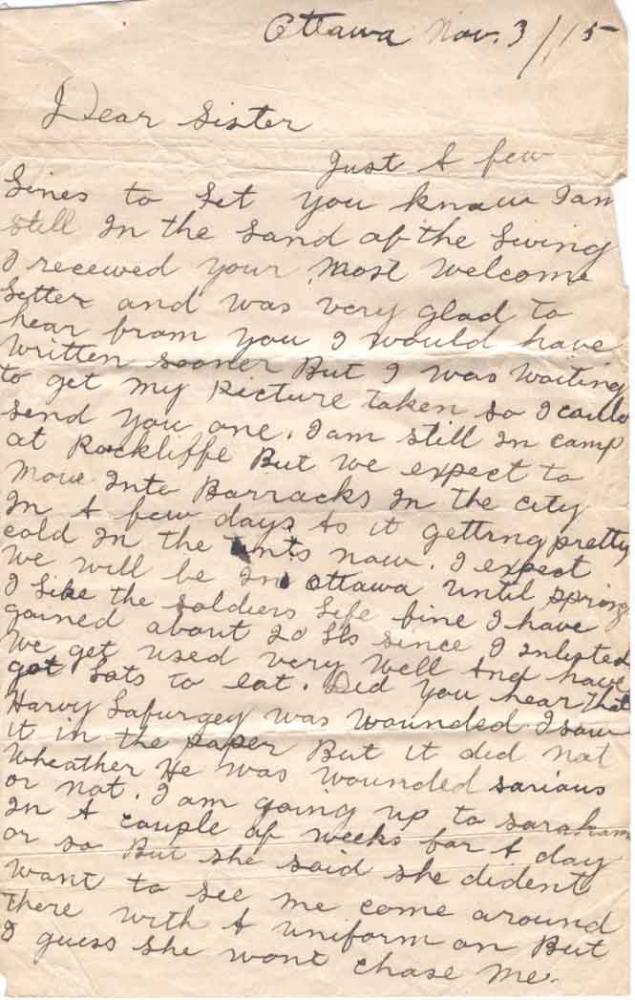 Ottawa Nov. 3/15
Dear Sister
Just A few
Lines to Let you know I am
still In the Land of the Living
I received your Most Welcome
Letter and was very glad to
hear from you I would have
Written sooner But I was Waiting
to get my Picture taken so I could
send you one. I am still In camp
at Rockliffe But we expect to
Move Into Barracks In the city
In A few days As it getting pretty
cold In the tents now. I expect
We will be In Ottawa until Spring
I Like the soldiers Life fine I have
gained about 20 Lbs since I Enlisted
We get used very Well And have
got Lots to eat. Did you hear That
Harvy Lafurgey was Wounded I saw
it in the paper But it did not
Wheather He was wounded sarious
or not. I am going up to Sarah
In A couple of weeks for A day
or so But she said she dident
Want to see me come around
There with A uniform on But
I guess she wont chase Me.